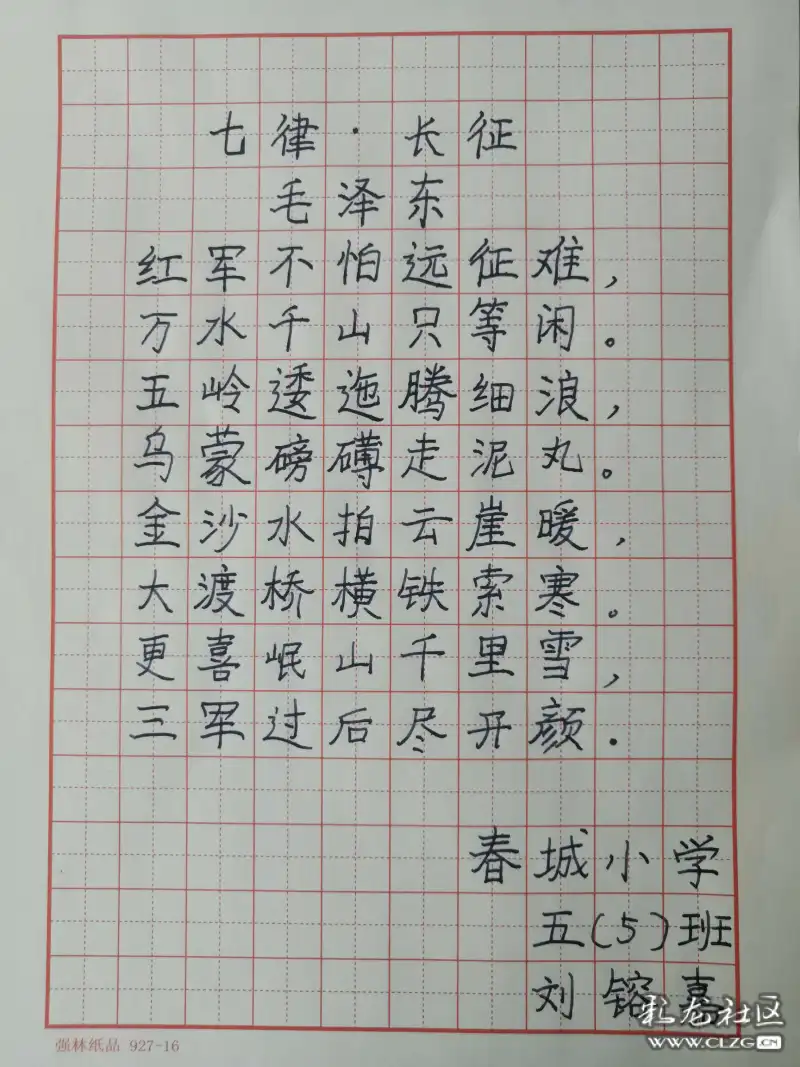 七律·长征
毛泽东
红军不怕远征难，
万水千山只等闲。
五岭逶迤腾细浪，
乌蒙磅礴走泥丸。
金沙水拍云崖暖，
大渡桥横铁索寒。
更喜岷山千里雪，
三军过后尽开颜.
春城小学
五(5)班
刘镕嘉
强林纸品 927-16
彩龙社区
www.CLZG.CN